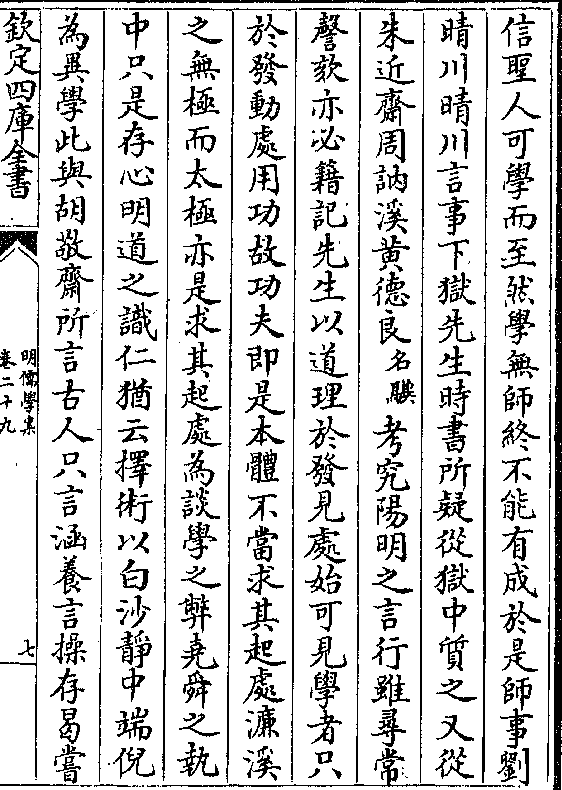 信聖人可學而至然學無師終不能有成於是師事劉
晴川晴川言事下獄先生時書所疑從獄中質之又從
朱近齋周訥溪黄德良名驥考究陽明之言行雖尋常
謦欬亦必籍記先生以道理於發見處始可見學者只
於發動處用功故功夫即是本體不當求其起處濓溪
之無極而太極亦是求其起處為談學之弊堯舜之執
中只是存心明道之識仁猶云擇術以白沙靜中端倪
為異學此與胡敬齋所言古人只言涵養言操存曷嘗
欽定四庫全書
明儒學案
卷二十九
七